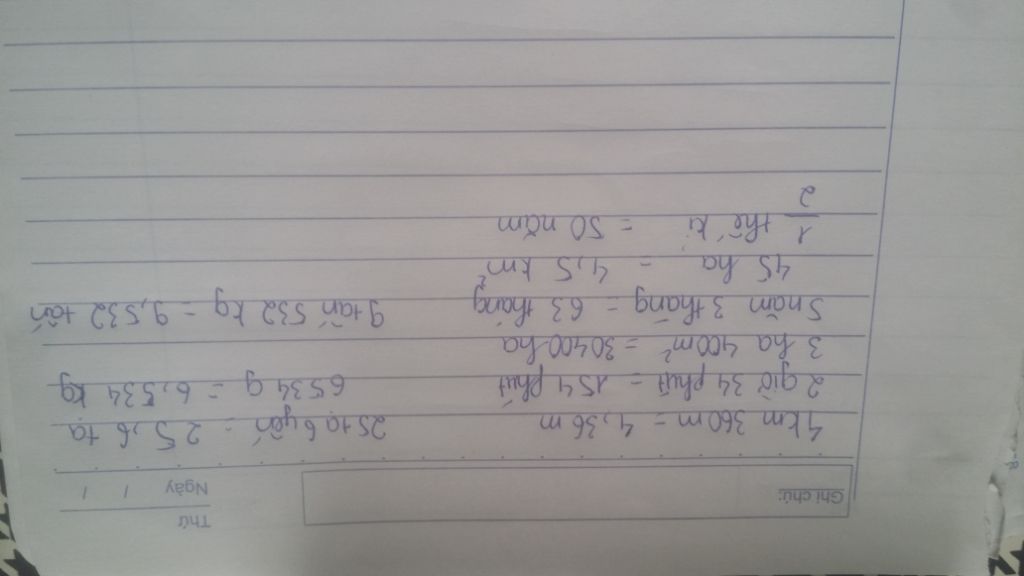 Thứ
Ngày / /
Ghi chú:
4km 360m = 4,36 m 25 tạ 6 yến = 25,6 tạ
2 giờ 34 phút = 154 phút 6534 g = 6,534 kg
3 ha 400m² = 30400 ha
5 năm 3 tháng = 63 tháng 9 tấn 532 kg = 9,532 tấn
45 ha = 4,5 km²
1/2 thế kỉ = 50 năm